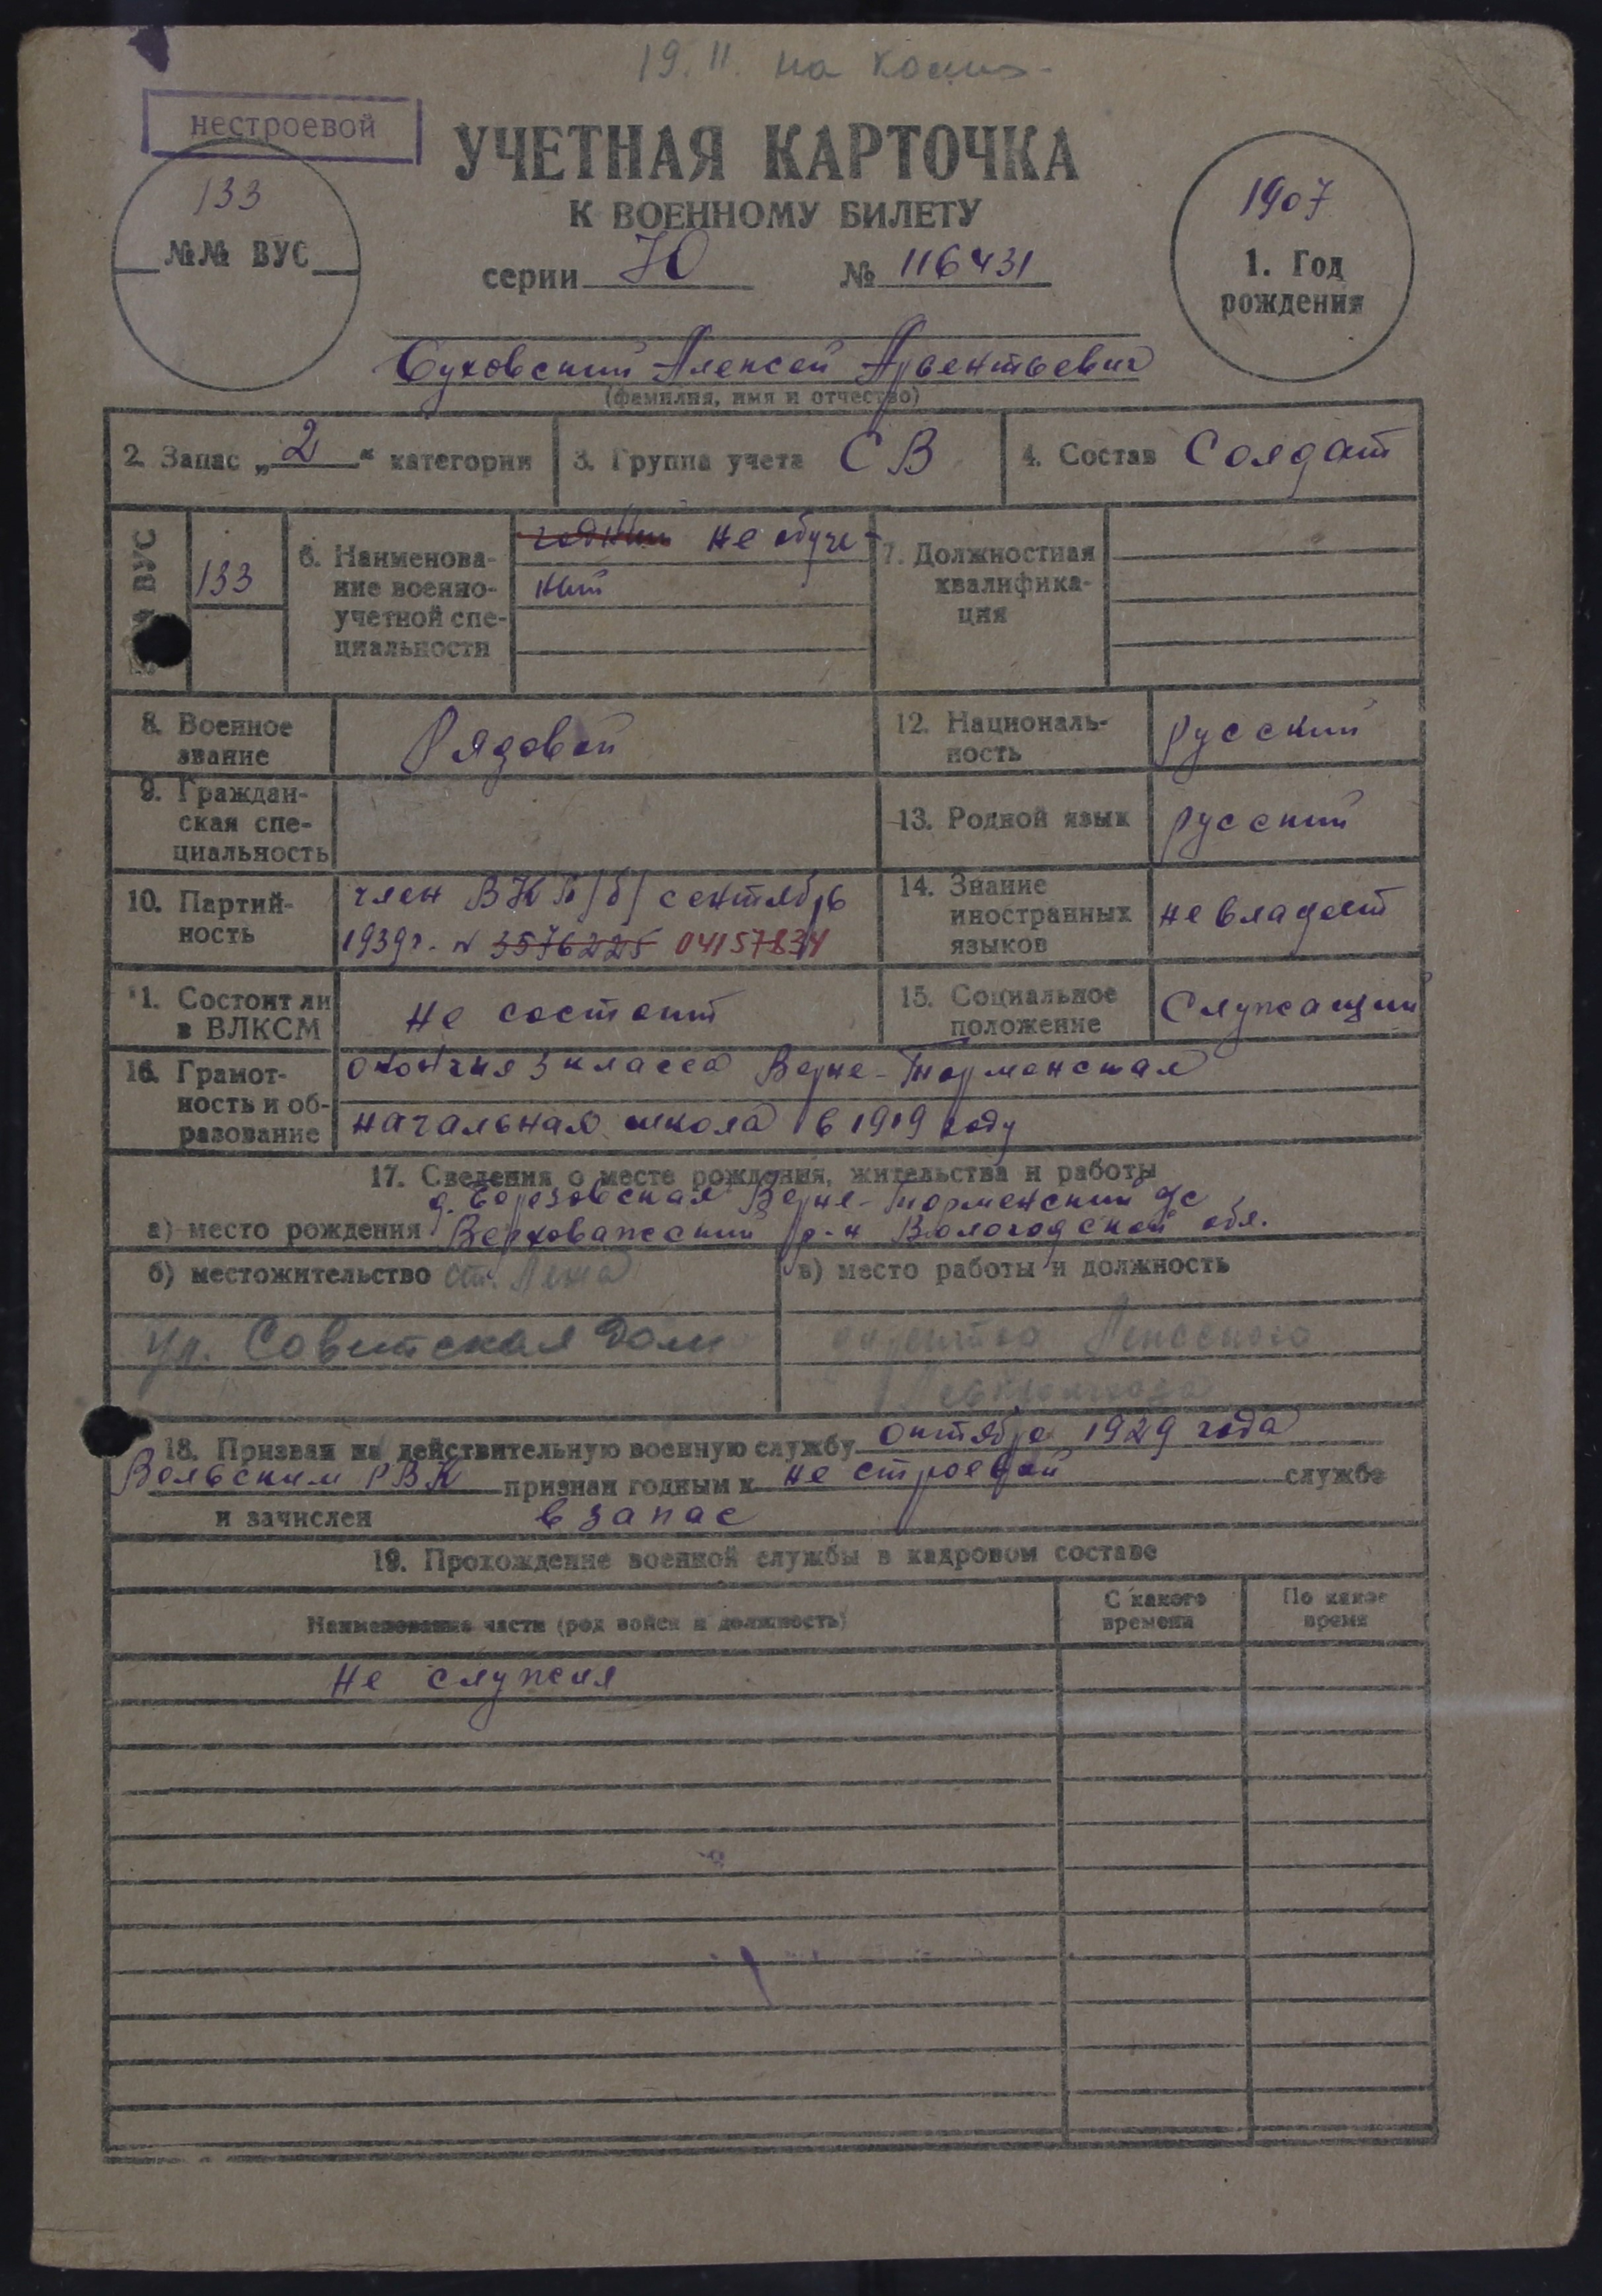 19.II. на
нестроевой
УЧЕТНАЯ КАРТОЧКА
К ВОЕННОМУ БИЛЕТУ
133
№№ ВУС
серии Ю № 116431
1907
1. Год
рождения
Алексей
(фамилия, имя и отчество)
2. Запас „2“ категории
3. Группа учета СВ
4. Состав Солдат
ВУС
133
6. Наименова-
ние военно-
учетной спе-
циальности
годный не обуче-
ный
7. Должностная
квалифика-
ция
8. Военное
звание
Рядовой
12. Националь-
ность
русский
9. Граждан-
ская спе-
циальность
13. Родной язык
русский
10. Партий-
ность
член ВКП/б/ сентябрь
1939г. № 3576225 04157834
14. Знание
иностранных
языков
не владеет
11. Состоит ли
в ВЛКСМ
не состоит
15. Социальное
положение
Служащий
16. Грамот-
ность и об-
разование
окончил 3 класса Верхне-Терменская
начальная школа в 1919 году
17. Сведения о месте рождения, жительства и работы
а) место рождения
Верховажский р-н Вологодской обл.
б) местожительство ст. Лежа
ул. Советская дом
в) место работы и должность
18. Призван на действительную военную службу октябре 1929 года
Вельским РВК признан годным к не строевой службе
и зачислен в запас
19. Прохождение военной службы в кадровом составе
Наименование части (род войск и должность)
С какого
времени
По какое
время
Не служил